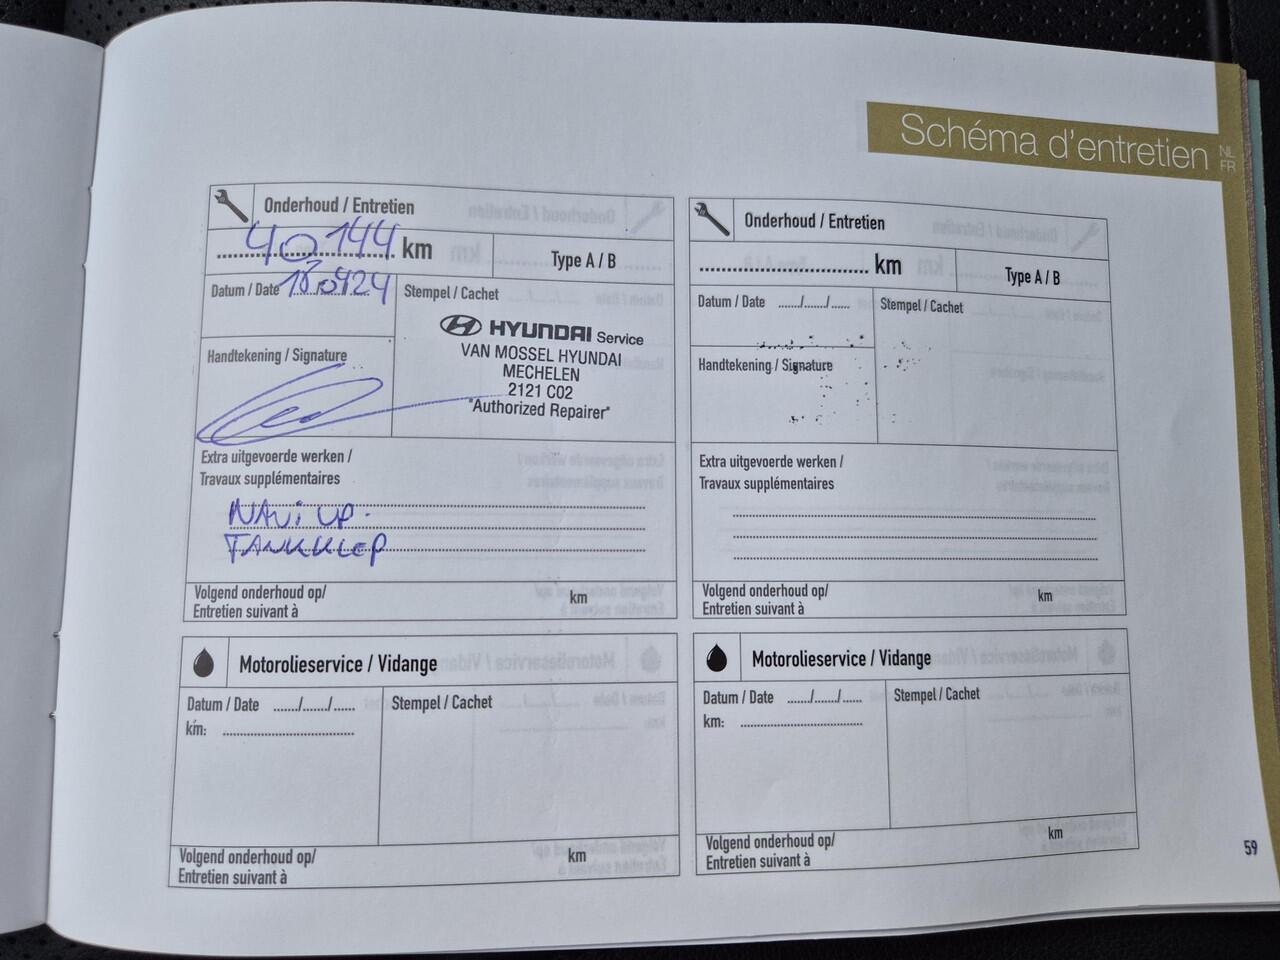 Schéma d'entretien
NL
FR
Onderhoud / Entretien
40.144 km
Type A / B
Datum / Date 18.0424
Stempel / Cachet
Handtekening / Signature
HYUNDAI Service
VAN MOSSEL HYUNDAI
MECHELEN
2121 C02
"Authorized Repairer"
Extra uitgevoerde werken /
Travaux supplémentaires
NAVi UP.
TANKKLEP
Volgend onderhoud op/
Entretien suivant à
km
Onderhoud / Entretien
km
Type A / B
Datum / Date ....../....../......
Stempel / Cachet
Handtekening / Signature
Extra uitgevoerde werken /
Travaux supplémentaires
Volgend onderhoud op/
Entretien suivant à
km
Motorolieservice / Vidange
Datum / Date ....../....../......
Stempel / Cachet
km:
Volgend onderhoud op/
Entretien suivant à
km
Motorolieservice / Vidange
Datum / Date ....../....../......
Stempel / Cachet
km:
Volgend onderhoud op/
Entretien suivant à
km
59